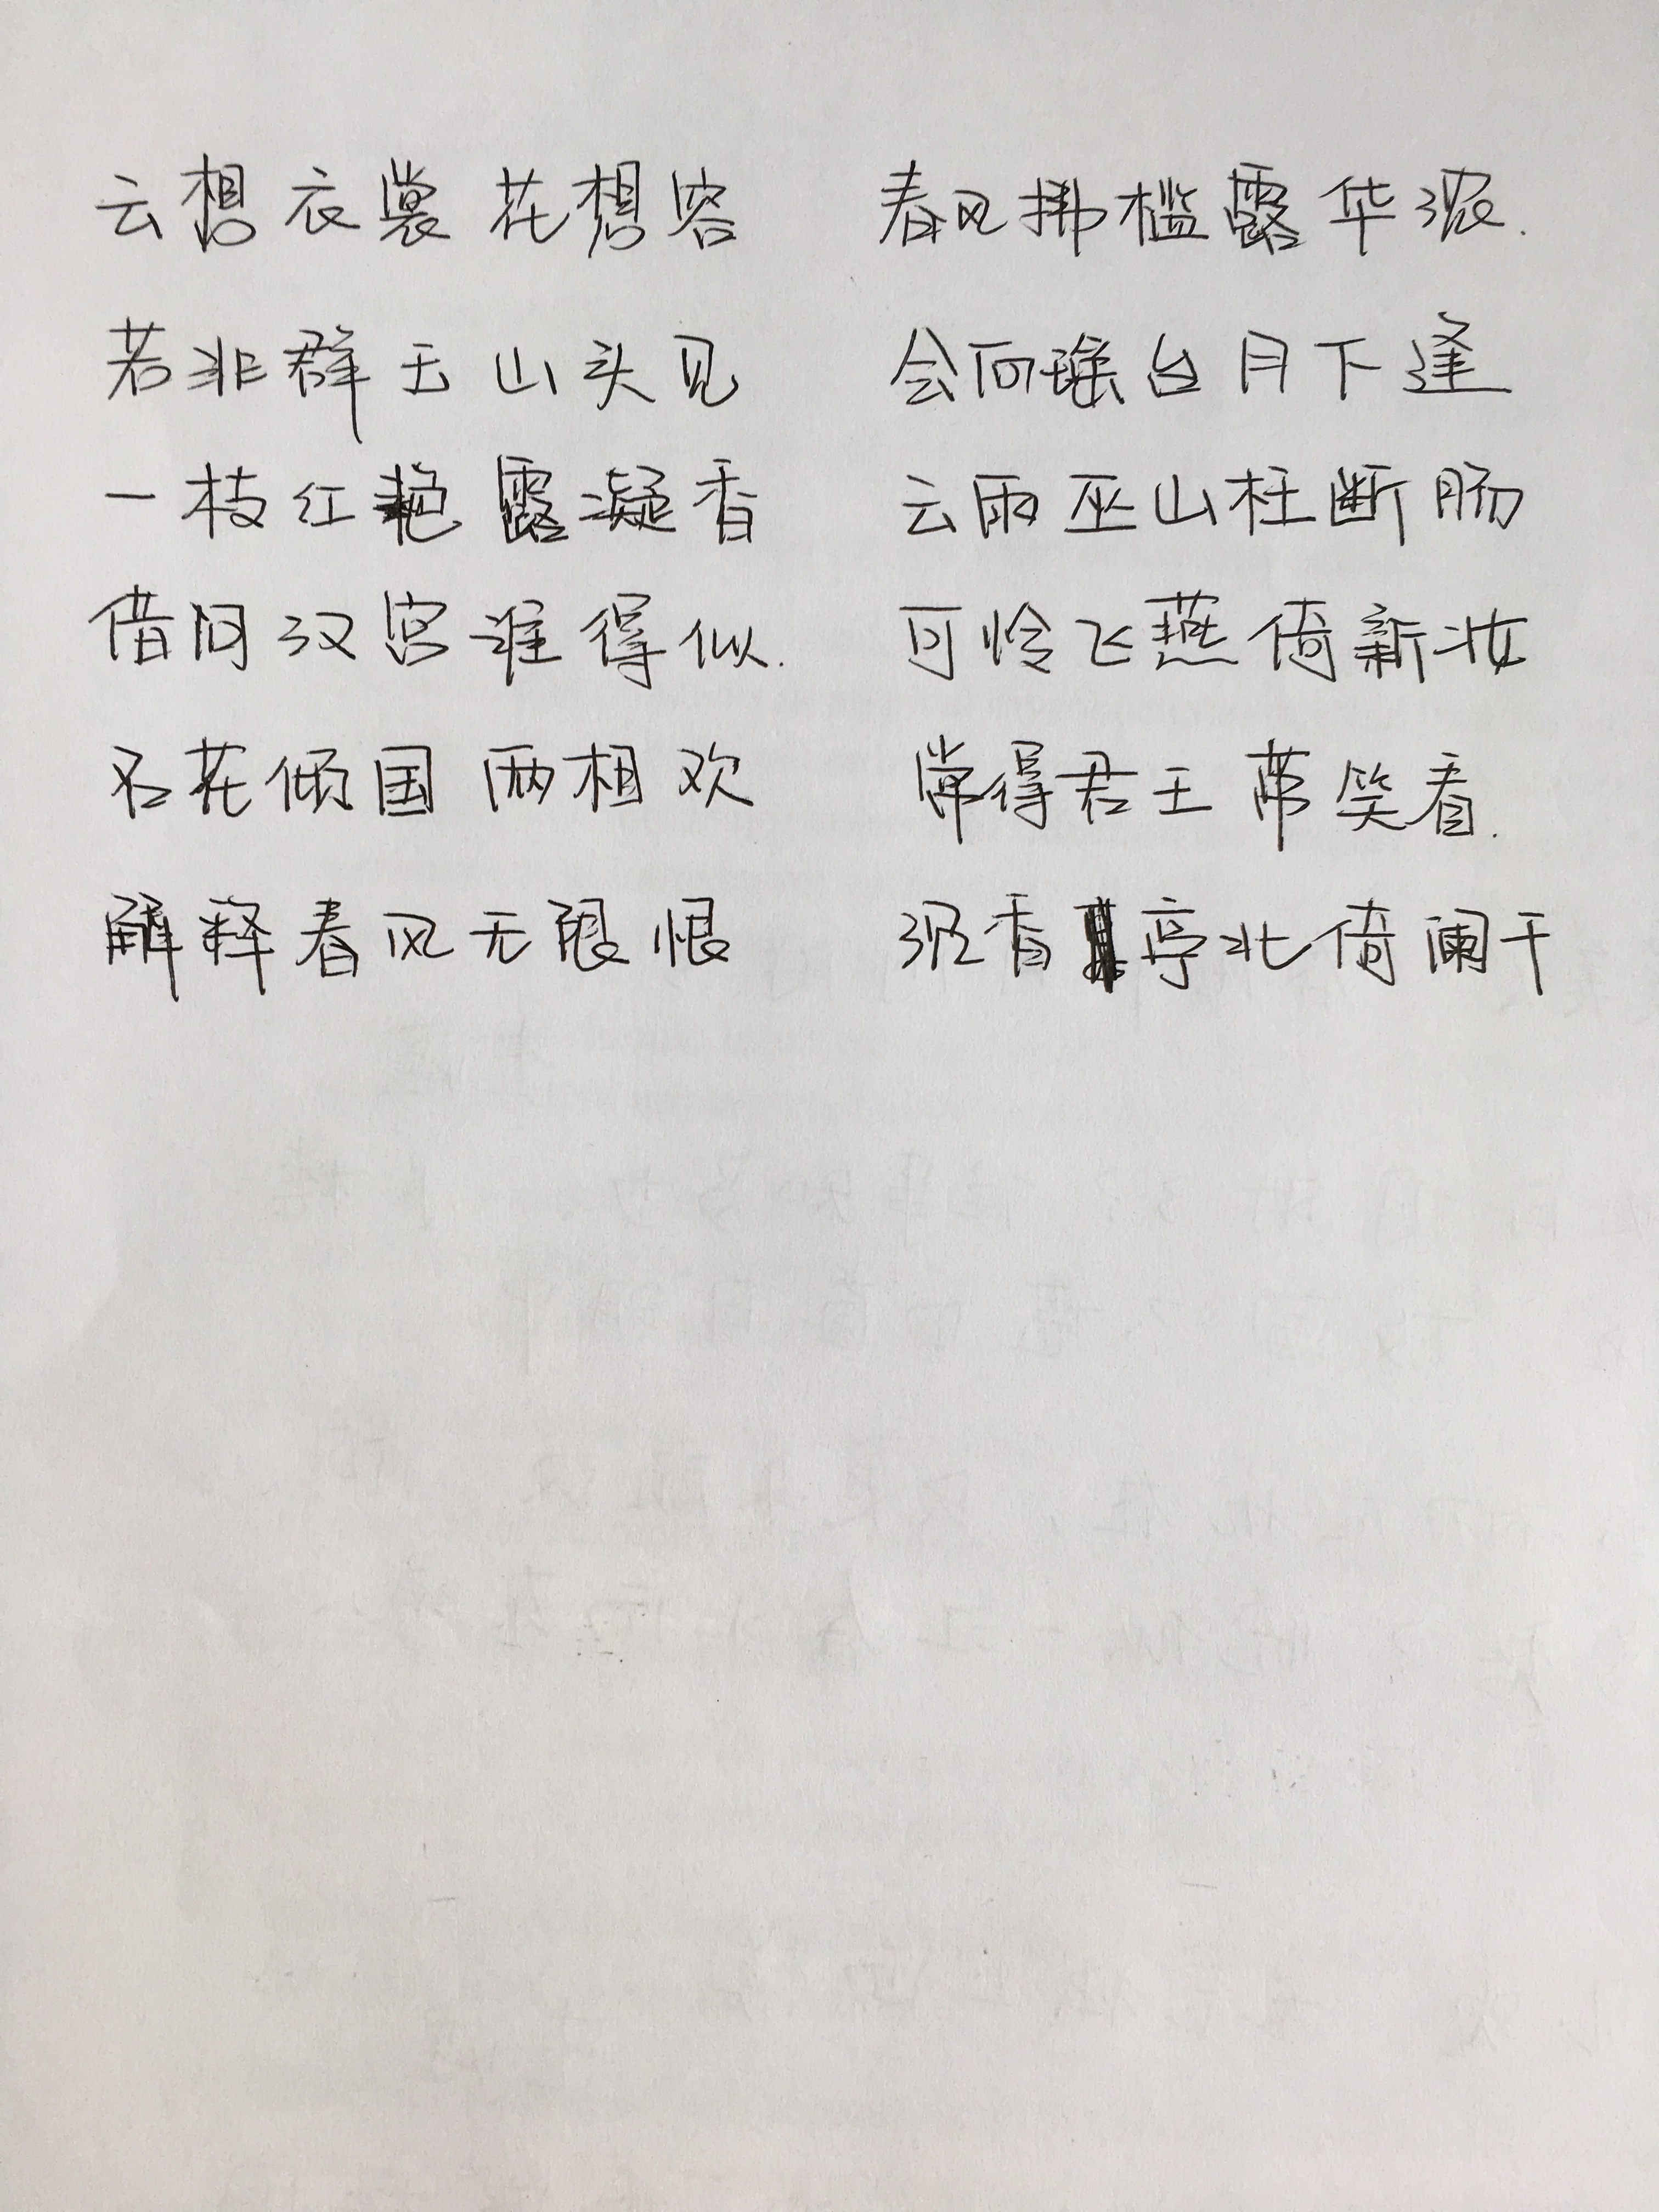 云想衣裳花想容 春风拂槛露华浓.
若非群玉山头见 会向瑶台月下逢
一枝红艳露凝香 云雨巫山枉断肠
借问汉宫谁得似. 可怜飞燕倚新妆
名花倾国两相欢 常得君王带笑看.
解释春风无限恨 沉香亭北倚阑干